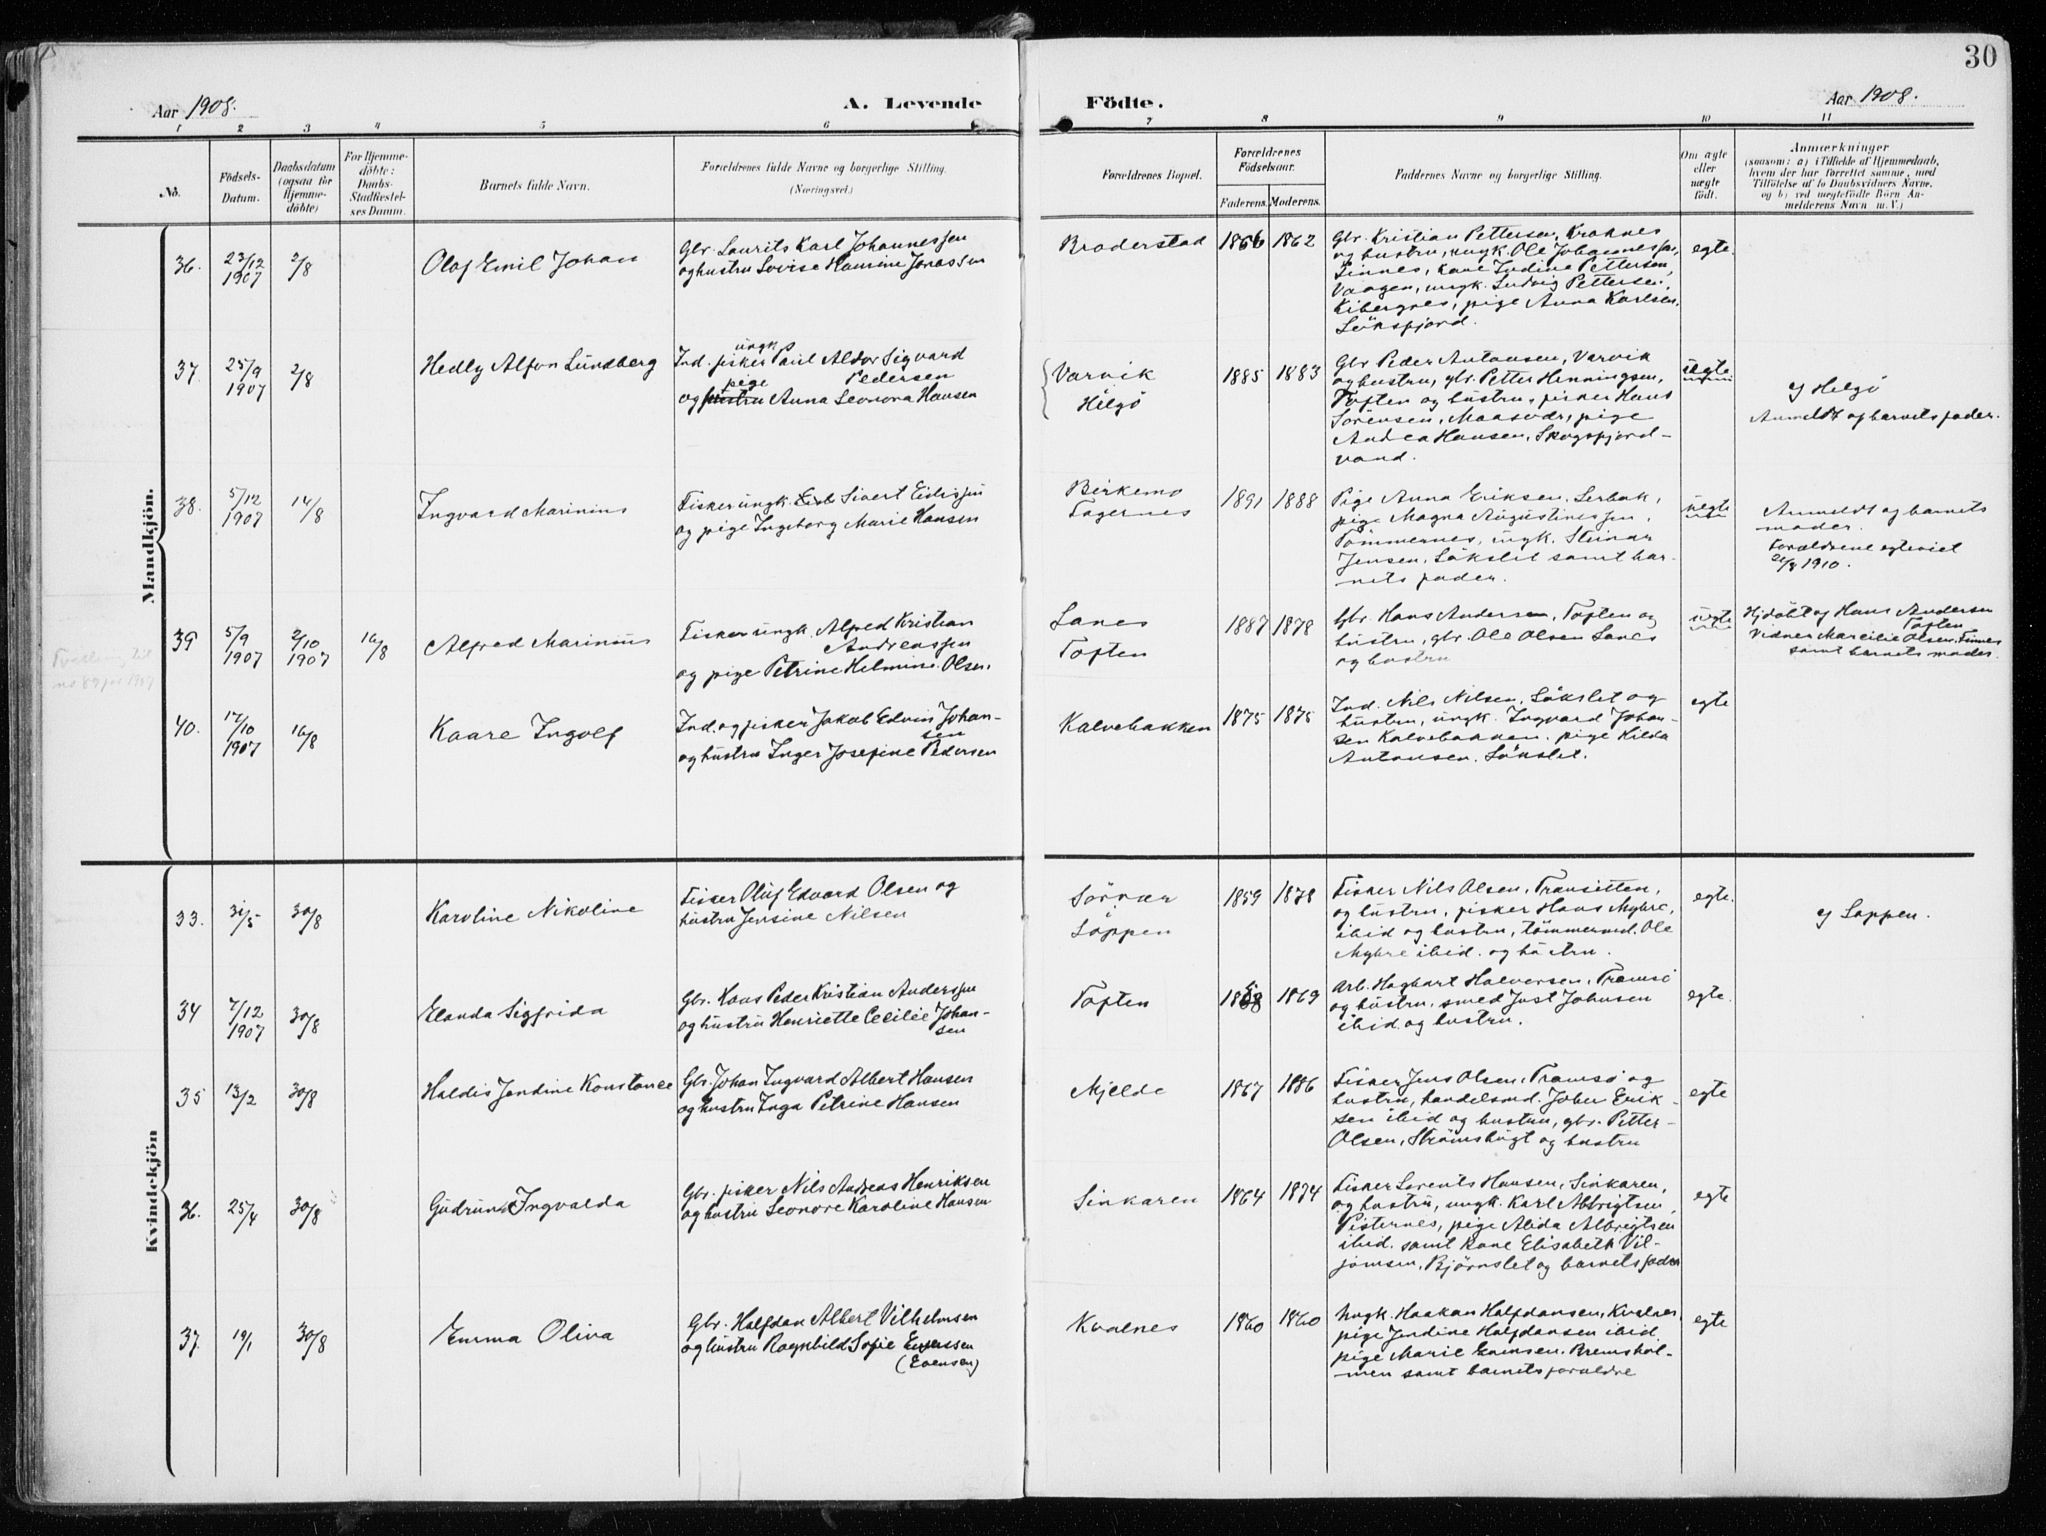 30
Aar 1908.
A. Levende
Födte.
Aar 1908.
1 2 3 4 5 6 7 8 9 10 11
No.
Födsels-
Datum.
Daabsdatum
(ogsaa for
Hjemme-
döbte)
For Hjemme-
döbte:
Daabs-
Stadfæstel-
ses Datum.
Barnets fulde Navn.
Forældrenes fulde Navne og borgerlige Stilling.
(Næringsvei.)
Forældrenes Bopæl.
Forældrenes
Födselsaar.
Faderens.
Moderens.
Faddernes Navne og borgerlige Stilling.
Om ægte
eller
uægte
født.
Anmærkninger
(saasom: a) i Tilfælde af Hjemmedaab,
hvem der har forrettet samme, med
Tilföielse af to Daabsvidners Navne.
og b) ved uægtefödte Börn An-
melderens Navn m. V.)
Mandkjön.
36.
23/12
1907
2/8
Olaf Emil Johan
Gbr. Laurits Karl Johannessen
og hustru Lovise Hansine Jonassen
Broderstad
1866
1862
Gbr. Kristian Pettersen, Kraknes
og hustru, ungk. Ole Johannessen,
Finnes, kone Indine Pettersen,
Vaagen, ungk. Ludvig Pettersen,
Kibergnes, pige Anna Karlsen,
Löksfjord.
egte.
37.
25/9
1907
2/8
Hedly Alfon Lundberg
ungk
Ind. fisker Paul Aldor Sigvard
pige Pedersen
og hustru Anna Leonora Hansen
Varvik
Helgö
1885
1883
Gbr Peder Antonsen, Varvik
og hustru, gbr. Petter Henningsen,
Toften og hustru, fisker Hans
Sörensen, Maasvær, pige
Andrea Hansen, Skogsfjord-
vand.
uegte
Helgö
Anmeldt af barnets fader.
38.
5/12
1907
14/8
Ingvard Marinius
Fisker ungk. Sivert Eidissen
og pige Ingeborg Marie Hansen
Birkemo
Fagernes
1891
1888
Pige Anna Eriksen, Lerbak,
pige Magna Augustinessen,
Tömmernes, ungk. Steinar
Jensen, Lökslet samt bar-
nets fader.
uegte
Anmeldt af barnets
moder.
Forældrene egteviet
1910.
Tvilling til
39
5/9
1907
2/10
1907
16/8
Alfred Marinius
Fisker ungk. Alfred Kristian
Andreassen
og pige Petrine Helmine Olsen.
Lanes
Toften
1887
1878
Gbr. Hans Andersen, Toften og
hustru, gbr. Ole Olsen Lanes
og hustru
uegte
Hjdöbt af Hans Andersen
Toften
Vidner Marcilie Olsen, Finnes
samt barnets moder.
40.
17/10
1907
16/8
Kaare Ingolf
Ind. og fisker Jakob Edvin Johan-
sen
og hustru Inger Josefine Pedersen
Kalvebakken
1875
1875
Ind. Nils Nilsen, Lökslet og
hustru, ungk. Ingvard Johan-
sen Kalvebakken. pige Hilda
Antonsen. Lökslet.
egte
Kvindekjön
33.
31/5
30/8
Karoline Nikoline
Fisker Oluf Edvard Olsen og
hustru Jensine Nilsen
Sörvær
i
Loppen
1859
1878
Fisker Nils Olsen, Transitten,
og hustru, fisker Hans Myhre,
ibid og hustru, tömmermd. Ole
Myhre ibid. og hustru.
egte.
af Loppen.
34
7/12
1907
30/8
Elanda Sigfrida
Gbr. Hans Peder Kristian Anderssen
og hustru Henriette Cecilie Johan-
sen
Toften
1869
Arb. Hagbart Halversen, Tromsö
og hustru, smed Just Johnsen
ibid og hustru.
egte.
35
13/2
30/8
Haldis Jendine Konstance
Gbr. Johan Ingvard Albert Hansen
og hustru Inga Petrine Hansen
Mjelde
1867
1886
Fisker Jens Olsen, Tromsö og
hustru, handelsmd. Joher Erik-
sen ibid og hustru, gbr. Petter
Olsen, Strömsbugt og hustru
egte
36.
25/4
30/8
Gudrun Ingvalda
Gbr. fisker Nils Andreas Henriksen
og hustru Leonore Karoline Hansen
Sinkaren
1864
1874
Fisker Lorents Hansen, Sinkaren,
og hustru, ungk. Karl Albrigtsen,
Pisternes, pige Alida Albrigtsen
ibid. samt kone Elisabeth Vil-
jomsen, Björnslet og barnets fader
egte
37.
19/1
30/8
Emma Oliva
Gbr. Halfdan Albert Vilhelmsen
og hustru Ragnhild Sofie Evenssen
(Evensen)
Kvalnes
1860
1860
Ungk. Haakan Halfdansen, Kvalnes,
pige Jendine Halfdansen ibid,
pige Marie Evensen. Bremshol-
men samt barnets forældre
egte